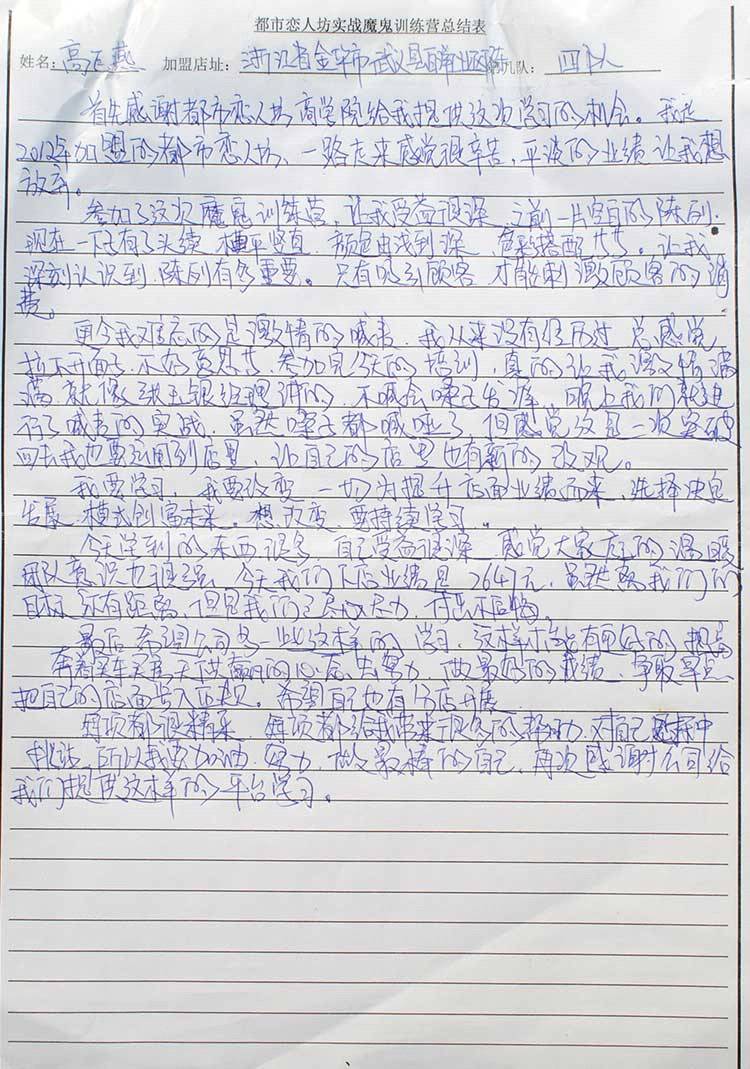 都市恋人坊实战魔鬼训练营总结表
姓名：高 燕 加盟店址：浙江省金华市武义县 第几队：四队
首先感谢都市恋人坊商学院给我提供这次学习的机会。我是
2012年加盟的都市恋人坊、一路走来感觉很辛苦，平淡的业绩让我想
放弃。
参加了这次魔鬼训练营，让我受益很深 之前一片空白的陈列.
现在一下子有了头绪 横平竖直 颜色由浅到深 色彩搭配 。让我
深刻认识到 陈列有多重要。只有吸引顾客 才能刺激顾客的消
费。
更令我难忘的是激情的喊卖. 我从来没有经历过 总感觉
拉不开面子，不好意思 ，参加完今天的培训，真的让我激情满
满 就像 经理讲的，不喊会嗓子发痒，晚上我们就进
行了喊卖的实战，虽然嗓子都喊哑了 但感觉这是一次突破
回去我也要运用到店里，让自己的店里也有新的改观。
我要学习，我要改变 一切为提升店面业绩而来，选择决定
发展、模式创富未来。想改变，要持续学习。
今天学到的东西很多，自己受益很深，感觉大家庭的温暖
团队意识力很强 今天我们下店业绩是7647元，虽然离我们的
目标 还有距离，但是我们已尽心尽力，付出不后悔。
最后希望公司多一些这样的学习，这样才能有更好的提高
奔着买车买房 的心态去努力，做最好的成绩，争取早点
把自己的店面步入正规。希望自己也有分店开展
每项都很精采 每项都给我带来很多的帮助，对自己 中
挑战，所以我要加油，努力，做最棒的自己，再次感谢公司给
我们提供这样的平台学习。